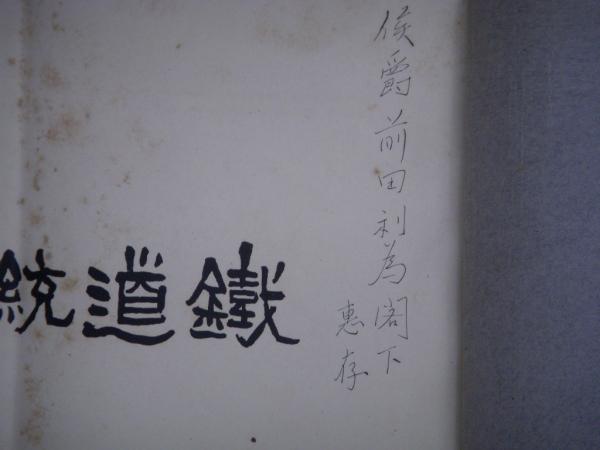 侯爵前田利為閣下
惠存
鐵道統